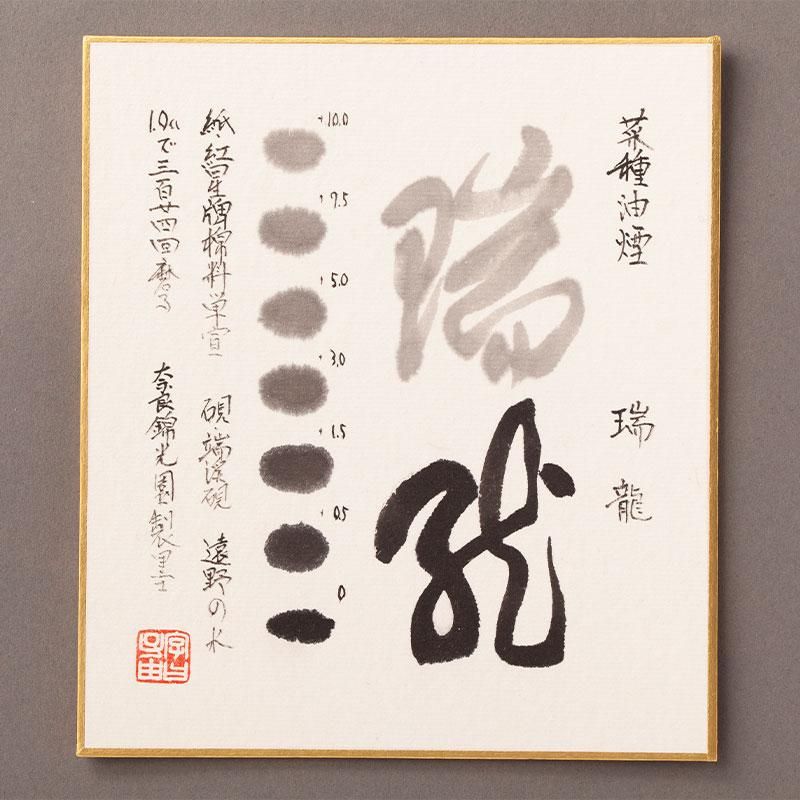 菜種油煙　瑞龍
瑞龍
+10.0
+7.5
+5.0
+3.0
+1.5
+0.5
0
紙・紅星牌棉料単宣　硯・端渓硯　遠野の水
1.0ccで三百廿四回磨る　奈良錦光園製墨